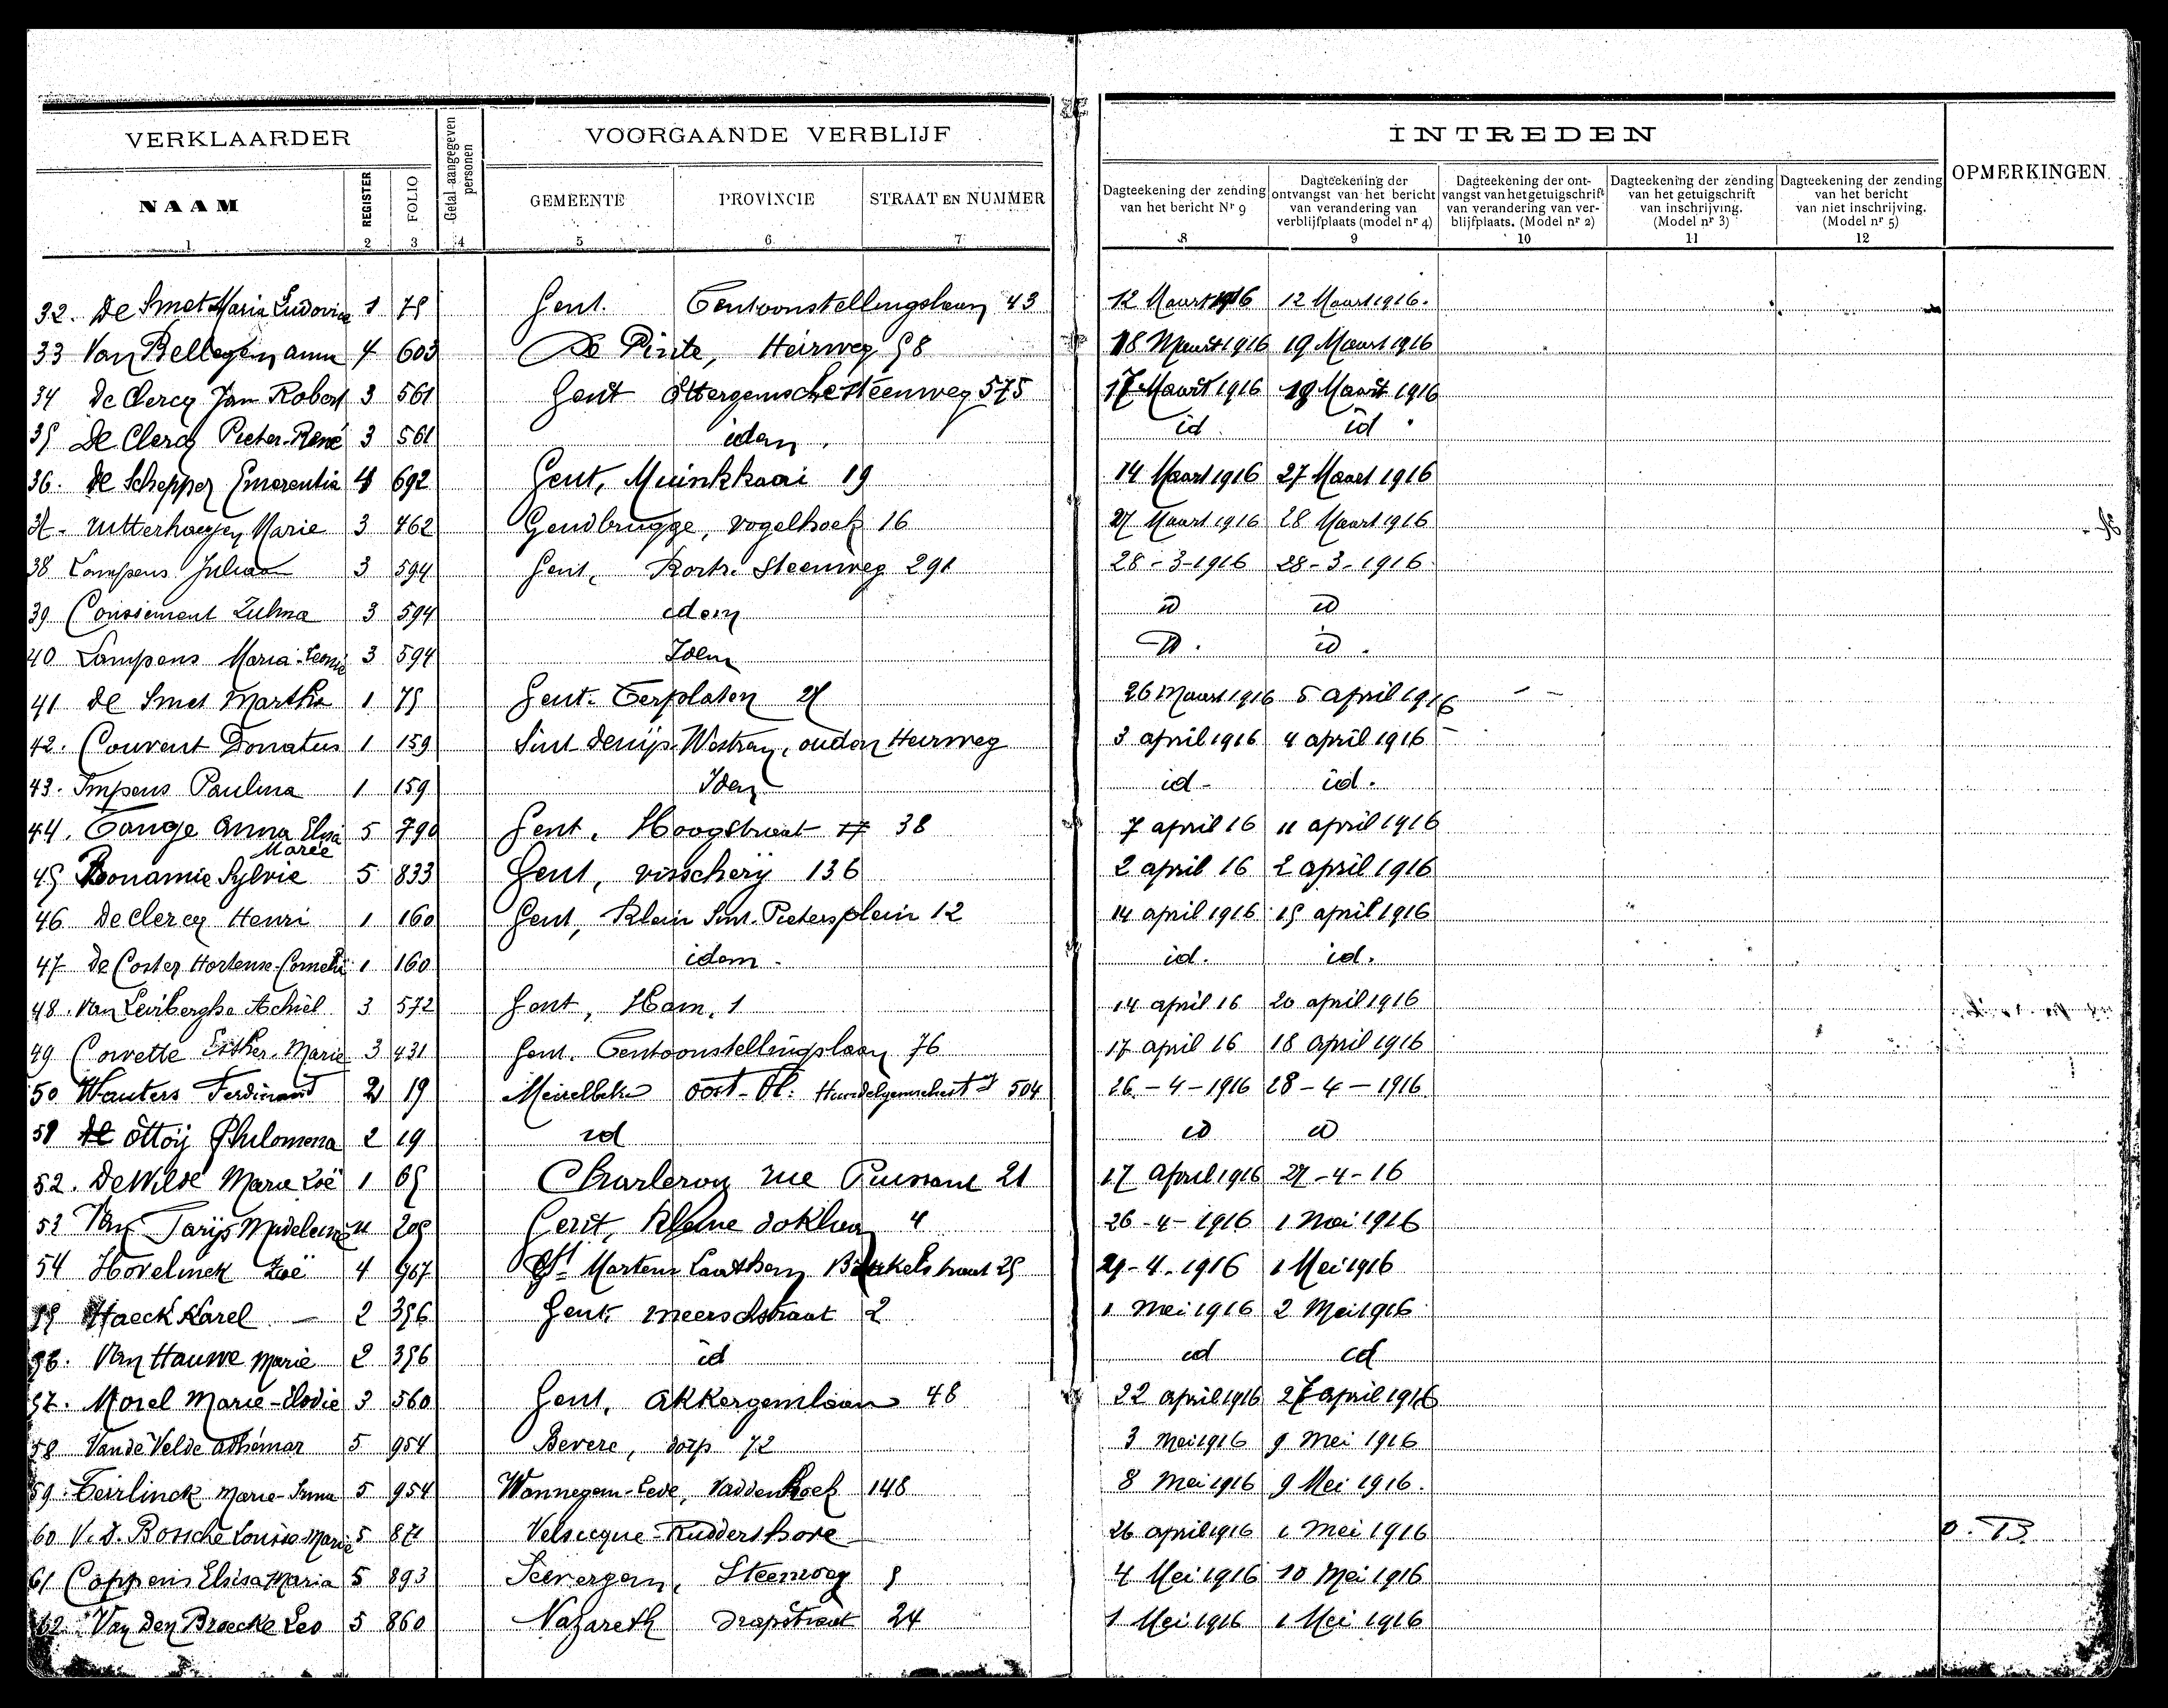 VERKLAARDER
Getal aangegeven personen
VOORGAANDE VERBLIJF
INTREDEN
OPMERKINGEN
NAAM
REGISTER
FOLIO
GEMEENTE
PROVINCIE
STRAAT EN NUMMER
Dagteekening der zending van het bericht Nr 9
Dagteekening der ontvangst van het bericht van verandering van verblijfplaats (model nr 4)
Dagteekening der ontvangst van het getuigschrift van verandering van verblijfplaats. (Model nr 2)
Dagteekening der zending van het getuigschrift van inschrijving. (Model nr 3)
Dagteekening der zending van het bericht van niet inschrijving. (Model nr 5)
1 2 3 4 5 6 7 8 9 10 11 12
32. De Smet Maria Ludovica 1 75 Gent. Tentoonstellingslaan 43 12 Maart 1916 12 Maart 1916.
33 Van Bellegem anna 4 603 De Pinte, Heirweg 58 18 Maart 1916 19 Maart 1916
34 De Clercq Jan Robert 3 561 Gent steenweg 575 17 Maart 1916 19 Maart 1916
35 De Clercq Pieter-René 3 561 idem. id id
36. De Schepper Emerentia 4 692 Gent, Muinkkaai 19 14 Maart 1916 27 Maart 1916
37- Marie 3 462 Gendbrugge, Vogelhoek 16 27 Maart 1916 28 Maart 1916
38 Lampens Juliaan 3 594 Gent, Kortr. Steenweg 291 28-3-1916 28-3-1916
39 Zulma 3 594 idem id id
40 Lampens Maria-Leonie 3 594 Idem id. id.
41 De Smet Martha 1 75 Gent. Terplaten 26 Maart 1916 5 april 1916
42. Couvent Donatus 1 159 Sint Denijs-Westrem, ouden Heirweg 3 april 1916 4 april 1916
43. Impens Paulina 1 159 Idem id- id.
44. Tange Anna Elisa Marie 5 790 Gent, Hoogstraat 17 38 7 april 16 11 april 1916
45 Bonamie Sylvie 5 833 Gent, visscherij 136 2 april 16 2 april 1916
46 De Clercq Henri 1 160 Gent, Klein Sint-Pietersplein 12 14 april 1916 15 april 1916
47 De Coster Hortense-Cornelie 1 160 idem- id. id.
48. Van Leirberghe Achiel 3 572 Gent, Ham, 1 14 april 16 20 april 1916
49 Corvette Esther-Marie 3 431 Gent. Tentoonstellingslaan 76 17 april 16 18 april 1916
50 Wauters Ferdinand 2 19 Meirelbeke Oost-Vl. 504 26-4-1916 28-4-1916
51 de Ottoij Philomena 2 19 id id id
52. De Wilde Marie Zoë 1 65 Charleroy rue Puissant 21 17 April 1916 27-4-16
53 Van Madeleine 205 Gent, Kleine doklaan 4 26-4-1916 1 Mei 1916
54 Hovelinck Zoë 4 967 St Martens Laathem 25 29-4-1916 1 Mei 1916
55 Haeck Karel - 2 356 Gent. meerschstraat 2 1 Mei 1916 2 Mei 1916
56. Van Hauwe Marie 2 356 id id id
57. Morel Marie-Elodie 3 560 Gent, Akkergemlaan 48 22 april 1916 27 april 1916
58 Van de Velde Adhémar 5 954 Bevere, dorp 72 3 Mei 1916 9 Mei 1916
59. Teirlinck Marie-Irma 5 954 Wannegem-Lede, Vaddenhoek 148 8 Mei 1916 9 Mei 1916.
60 V.d. Bossche Louise-Marie 5 871 Velsicque-Ruddershove 26 april 1916 1 Mei 1916
61 Coppens Elisa Maria 5 893 Seevergem, Steenweg 5 4 Mei 1916 10 Mei 1916
62. Van Den Broecke Leo 5 860 Nazareth Drapstraat 24 1 Mei 1916 1 Mei 1916